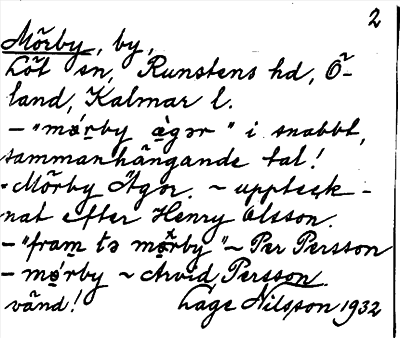 2
Mörby, by,
Löt sn, Runstens hd, Ö-
land, Kalmar l.
– "mǿ̱rby à̱gər" i snabbt,
sammanhängande tal!
= Mörby Ägor. ~ uppteck-
nat efter Henry Olsson.
– "fram̱ tə mø̱̌rby" ~ Per Persson
– mǿ̱rby ~ Arvid Persson.
vänd! Lage Nilsson 1932